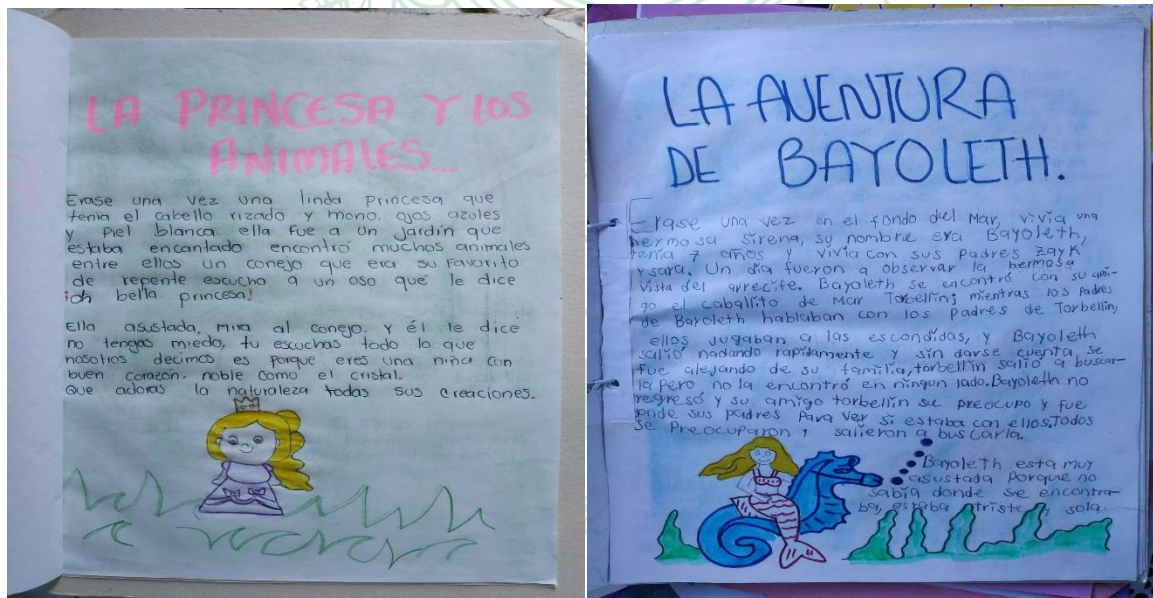 LA PRINCESA Y LOS
ANIMALES...
Erase una vez una linda princesa que
tenia el cabello rizado y mono, ojos azules
y piel blanca. ella fue a un jardín que
estaba encantado encontró muchos animales
entre ellos un conejo que era su favorito
de repente escucho a un oso que le dice
¡oh bella princesa!
Ella asustada, mira al conejo. y él le dice
no tengas miedo, tu escuchas todo lo que
nosotros decimos es porque eres una niña con
buen corazón. noble como el cristal.
Que adoras la naturaleza todas sus creaciones.
LA AVENTURA
DE BAYOLETH.
Erase una vez en el fondo del Mar, vivía una
hermosa sirena, su nombre era Bayoleth,
tenía 7 años y vivía con sus padres Zayk
y sara. Un día fueron a observar la hermosa
vista del arrecife. Bayoleth se encontró con su ami-
go el caballito de Mar Torbellin; mientras los padres
de Bayoleth hablaban con los padres de Torbellin,
ellos jugaban a las escondidas, y Bayoleth
salió nadando rapidamente y sin darse cuenta, se
fue alejando de su familia, torbellin salió a buscar-
la pero no la encontró en ningun lado. Bayoleth no
regresó y su amigo torbellin se preocupo y fue
onde sus padres Para ver si estaba con ellos. Todos
se Preocuparon y salieron a buscarla.
Bayoleth esta muy
asustada porque no
sabía donde se encontra-
ba, estaba triste y sola.